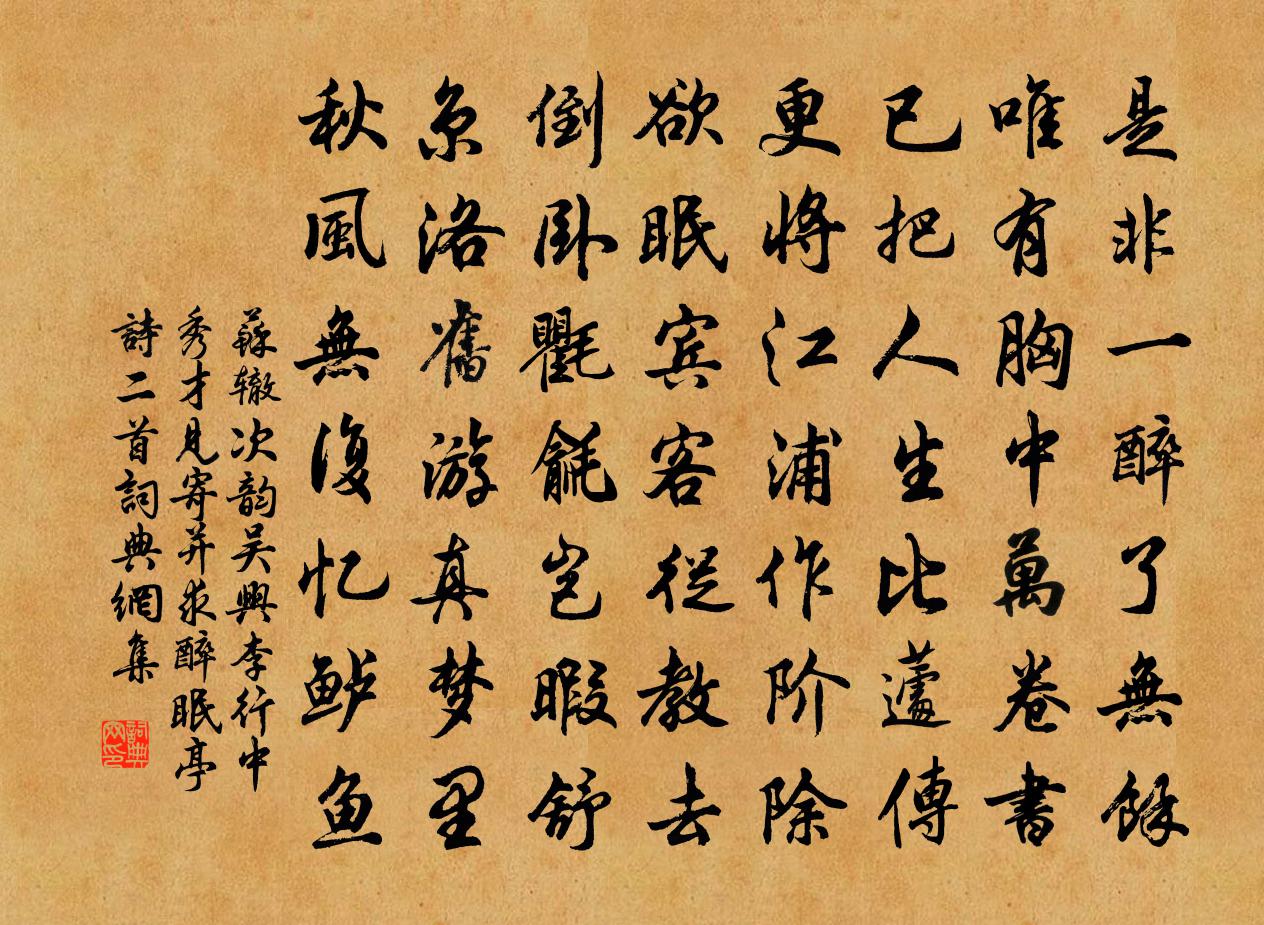 是非一醉了無餘
唯有胸中萬卷書
已把人生比蘧傳
更將江浦作阶除
欲眠宾客從教去
倒卧氍毹岂暇舒
京洛舊游真梦里
秋風無復忆鲈鱼
蘇辙次韵吴興李行中
秀才見寄并求醉眠亭
詩二首詞典網集
詞典网印